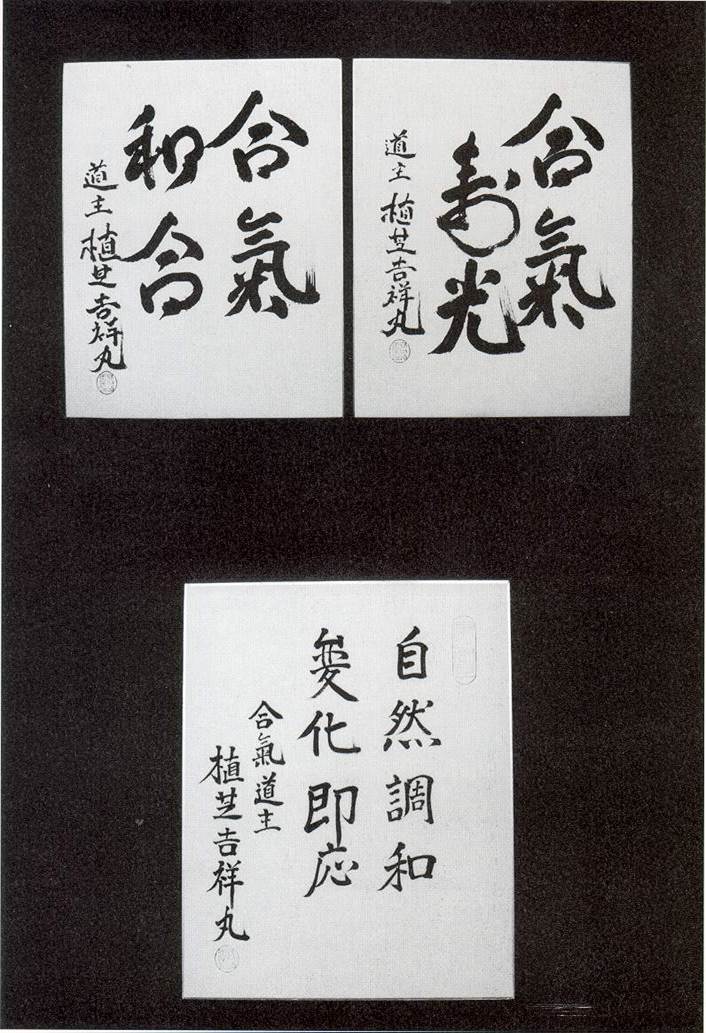 合氣
寿光
道主 植芝吉祥丸
合氣
和合
道主 植芝吉祥丸
自然調和
変化即応
合氣道主
植芝吉祥丸